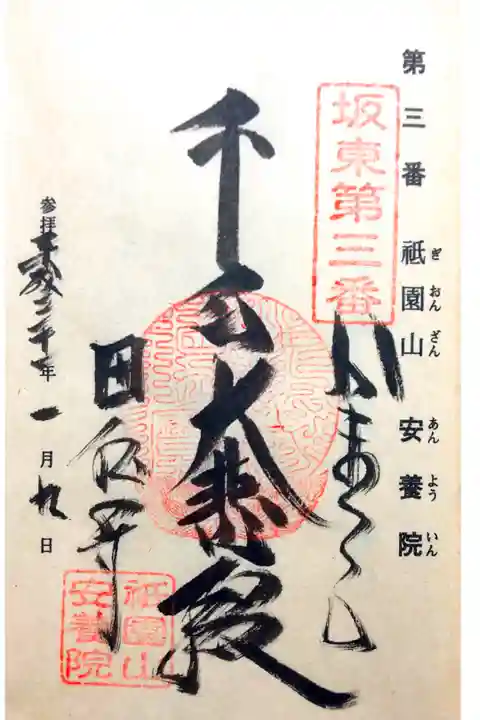 第三番 祇園山 安養院
ぎおんざん あんよういん
坂東第三番
かまくら
千手大悲殿
田代寺
祇園山
安養院
参拝 平成二十一年 一月九日